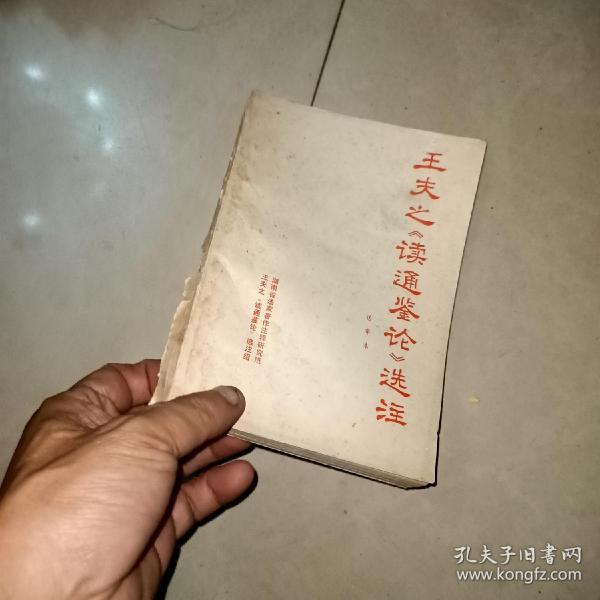 王夫之《读通鉴论》选注
送审本
湖南省法家著作注释研究班
王夫之“读通鉴论”选注组
孔夫子旧书网
www.kongfz.com